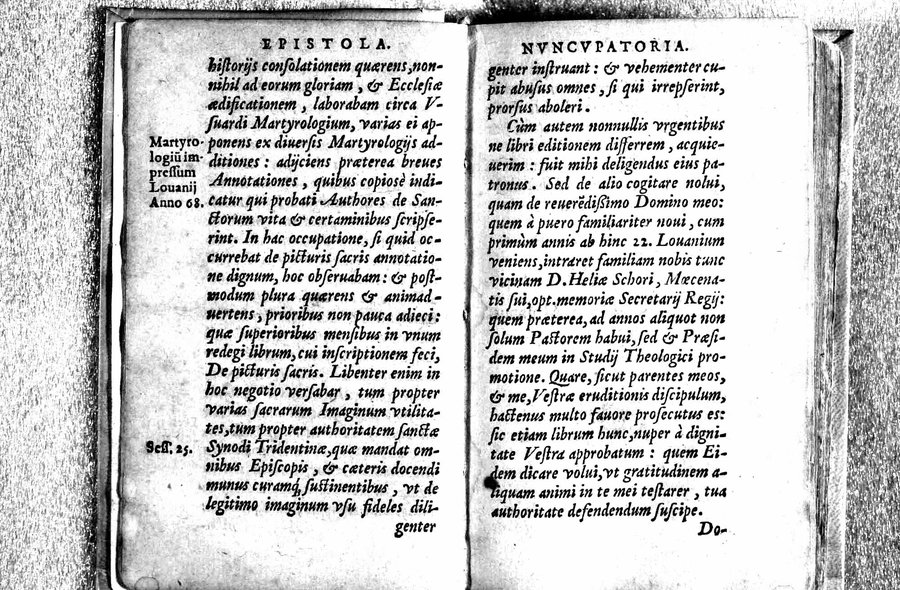 EPISTOLA.
historijs consolationem quærens, non-
nihil ad eorum gloriam, & Ecclesiæ
ædificationem, laborabam circa V-
suardi Martyrologium, varias ei ap-
ponens ex diuersis Martyrologijs ad-
ditiones: adijciens præterea breues
Annotationes, quibus copiosè indi-
catur qui probati Authores de San-
ctorum vita & certaminibus scripse-
rint. In hac occupatione, si quid oc-
currebat de picturis sacris annotatio-
ne dignum, hoc obseruabam: & post-
modum plura quærens & animad-
uertens, prioribus non pauca adieci:
quæ superioribus mensibus in vnum
redegi librum, cui inscriptionem feci,
De picturis sacris. Libenter enim in
hoc negotio versabar, tum propter
varias sacrarum Imaginum vtilita-
tes, tum propter authoritatem sanctæ
Synodi Tridentinæ, quæ mandat om-
nibus Episcopis, & cæteris docendi
munus curamq́; sustinentibus, vt de
legitimo imaginum vsu fideles dili-
genter
Martyro-
logiū im-
pressum
Louanij
Anno 68.
Sess. 25.
NVNCVPATORIA.
genter instruant: & vehementer cu-
pit abusus omnes, si qui irrepserint,
prorsus aboleri.
Cùm autem nonnullis vrgentibus
ne libri editionem differrem, acquie-
uerim: fuit mihi deligendus eius pa-
tronus. Sed de alio cogitare nolui,
quam de reuerēdissimo Domino meo:
quem à puero familiariter noui, cum
primùm annis ab hinc 22. Louanium
veniens, intraret familiam nobis tunc
vicinam D. Heliæ Schori, Mœcena-
tis sui, opt. memoriæ Secretarij Regij:
quem præterea, ad annos aliquot non
solum Pastorem habui, sed & Præsi-
dem meum in Studij Theologici pro-
motione. Quare, sicut parentes meos,
& me, Vestræ eruditionis discipulum,
hactenus multo fauore prosecutus es:
sic etiam librum hunc, nuper à digni-
tate Vestra approbatum: quem Ei-
dem dicare volui, vt gratitudinem a-
liquam animi in te mei testarer, tua
authoritate defendendum suscipe.
Do-